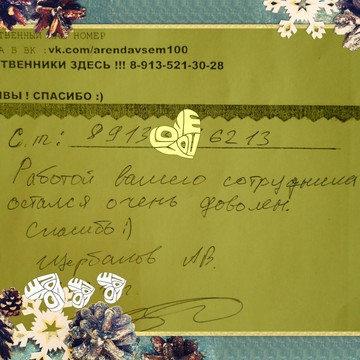 НОМЕР
А В ВК :vk.com/arendavsem100
ТВЕННИКИ ЗДЕСЬ !!! 8-913-521-30-28
ВЫ ! СПАСИБО :)
С.т: 8913 6213
LOVE YOU
Работой вашего сотрудника
остался очень доволен.
Спасибо :)
Щербаков А.В.